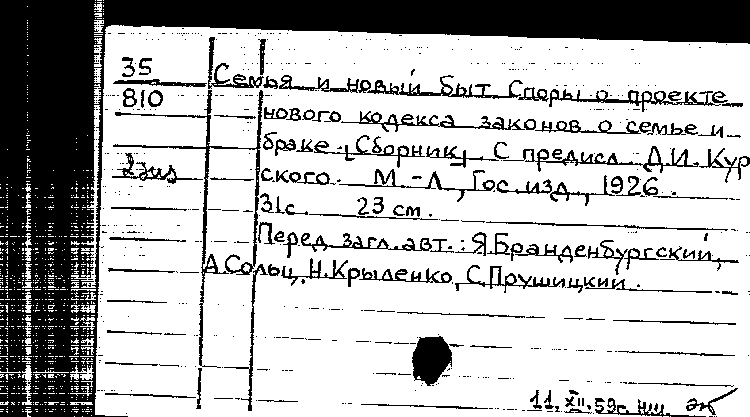 35
810
2 экз
Семья и новый быт Споры о проекте
нового кодекса законов о семье и
браке. [Сборник]. С предисл. Д.И. Кур
ского. М.-Л., Гос. изд., 1926.
31с. 23 см.
Перед загл. авт.: Я.Бранденбургский,
А.Сольц, Н.Крыленко, С.Прушицкий.
11.XII.59г.